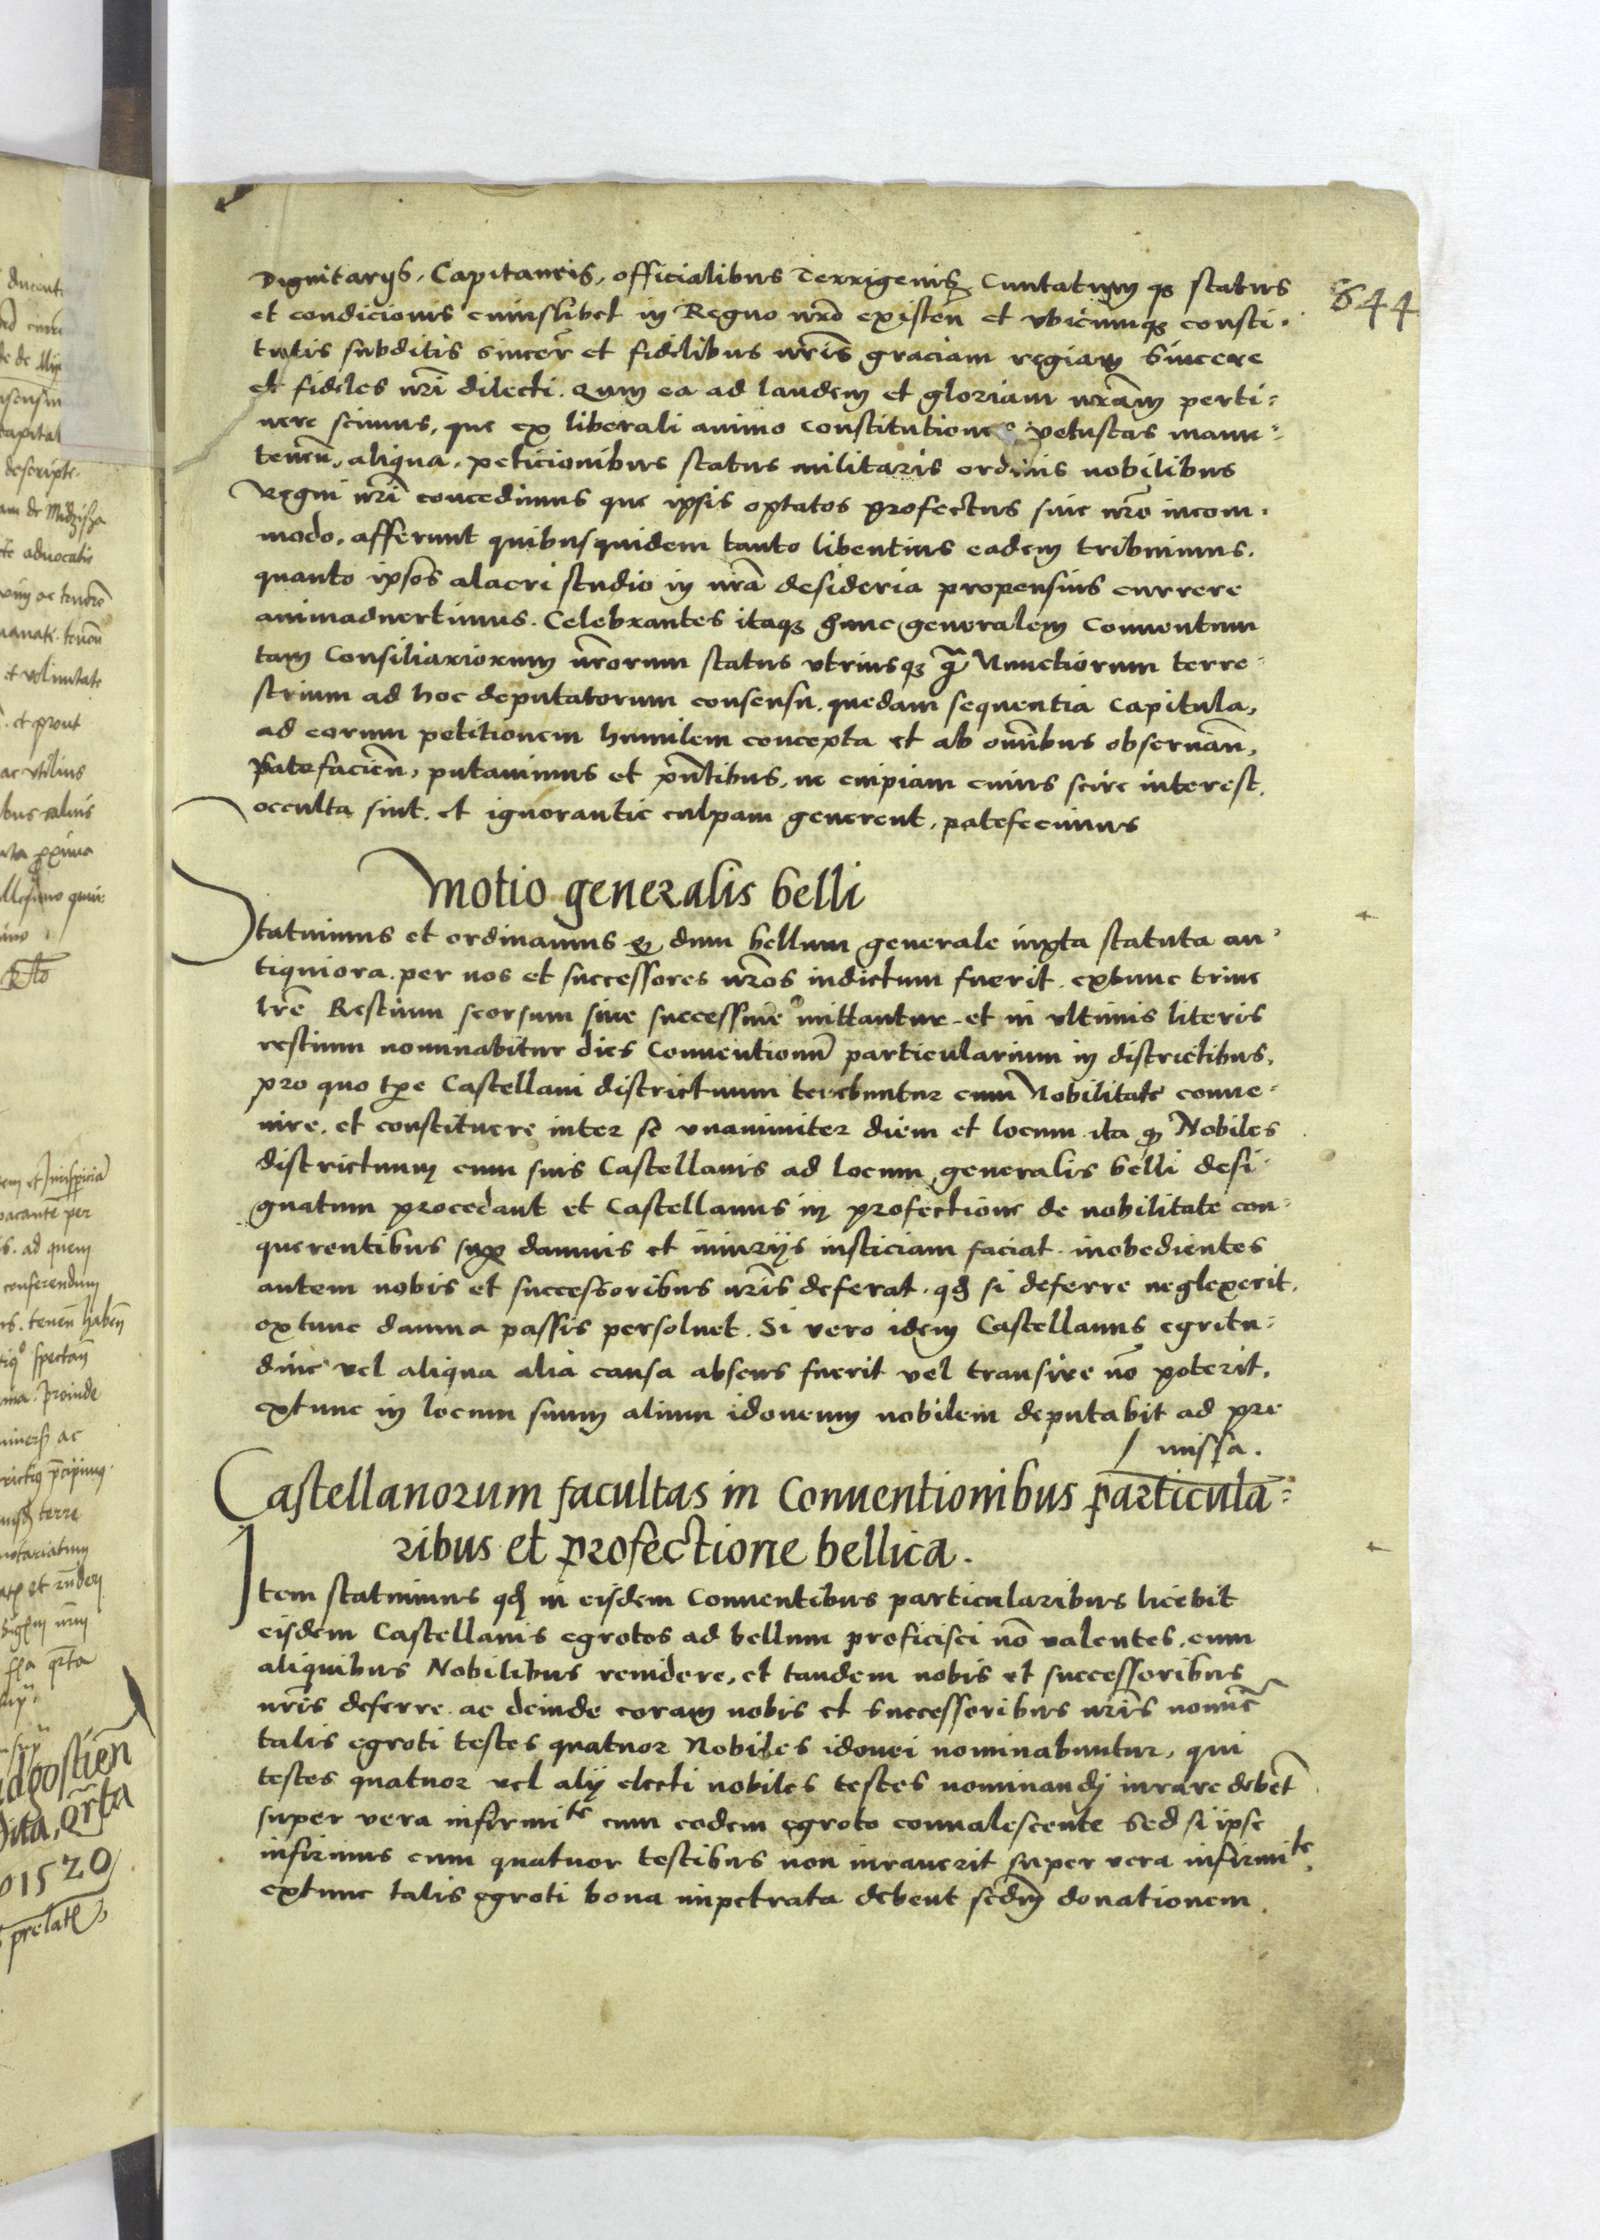 Dignitarijs, Capitaneis, officialibus Terrigenis, Cuntatumq3 status
644
et condicionis cuiuslibet in Regno nro existen et vbicumq3 consti-
tutis subditis sincer et fidelibus nris graciam regiam Sincere
et fideles nri dilecti. Qum ea ad laudem et gloriam nram perti-
nere scimus, que ex liberali animo constitutiones vetustas manu-
tenen, aliqua, peticionibus status militaris ordinis nobilibus
Regni nri concedimus que ipsis optatos profectus sine nro incom-
modo, afferunt quibusquidem tanto libentius eadem tribuimus,
quanto ipsos alacri studio in nra desideria propensius currere
animaduertimus. Celebrantes itaq3 hunc generalem Conuentum
tam Consiliariorum nrorum status vtriusq3 q Nunctiorum terre-
strium ad hoc deputatorum consensu, quedam sequentia Capitula,
ad eorum petitionem humilem concepta et ab omnibus obseruan,
patefacien, putauimus et pntibus, ne cuipiam cuius scire interest,
occulta sint, et ignorantie culpam generent, patefecimus
Motio generalis belli
Statuimus et ordinamus q dum bellum generale iuxta statuta an-
tiquiora per nos et successores nros indictum fuerit, extunc trine
lre Restium seorsum siue successiue mittantur et in vltimis literis
restium nominabitur dies Conuentionum particularium in districtibus,
pro quo tpe Castellani districtuum tenebuntur cum Nobilitate conue-
nire, et constituere inter se vnanimiter diem et locum ita q Nobiles
districtuum cum suis Castellanis ad locum generalis belli desi-
gnatum procedant et Castellanus in profectione de nobilitate con-
querentibus sup damnis et iniurijs iusticiam faciat, inobedientes
autem nobis et successoribus nris deferat, qd si deferre neglexerit,
extunc damna passis persoluet. Si vero idem Castellanus egritu-
dine vel aliqua alia causa absens fuerit vel transire no poterit,
extunc in locum suum alium idoneum nobilem deputabit ad pre
missa.
Castellanorum facultas in Conuentionibus particula-
ribus et profectione bellica.
Item statuimus qd in eisdem Conuentibus particularibus licebit
eisdem Castellanis egrotos ad bellum proficisci no valentes, cum
aliquibus Nobilibus reuidere, et tandem nobis et successoribus
nris deferre ac deinde coram nobis et Successoribus nris nomine
talis egroti testes quatuor Nobiles idonei nominabuntur, qui
testes quatuor vel alij electi nobiles testes nominandj iurare debent
super vera infirmite cum eodem egroto conualescente Sed si ipse
infirmus cum quatuor testibus non iurauerit super vera infirmite,
extunc talis egroti bona impetrata debent sedm donationem